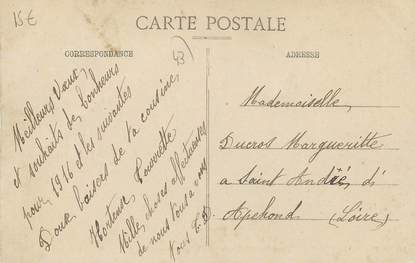 15€
CARTE POSTALE
CORRESPONDANCE
43
ADRESSE
Meilleurs Vœux
et souhaits de bonheurs
pour 1916 et les suivantes
Doux baisers de ta cousine,
Hortense
Mille choses affectueuses
de nous tous a vous
tous
Mademoiselle,
Ducros Margueritte
a Saint André, d'
Apchond (Loire)